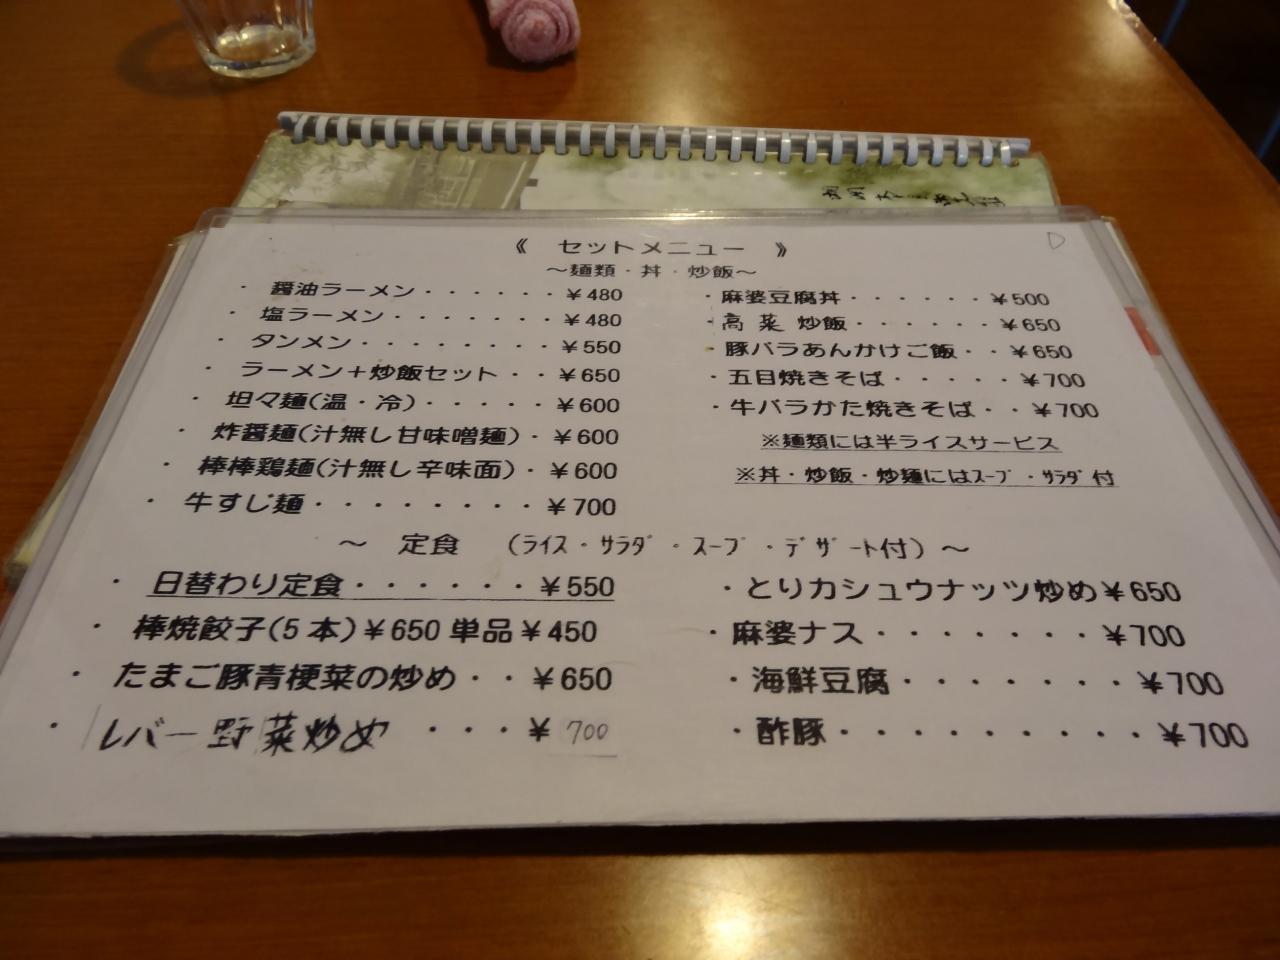 《 セットメニュー 》
～麺類・丼・炒飯～
・醤油ラーメン・・・・・・・￥480
・塩ラーメン・・・・・・・￥480
・タンメン・・・・・・・・￥550
・ラーメン＋炒飯セット・・￥650
・坦々麺(温・冷)・・・・・￥600
・炸醤麺(汁無し甘味噌麺)・￥600
・棒棒鶏麺(汁無し辛味面)・￥600
・牛すじ麺・・・・・・・・￥700
・麻婆豆腐丼・・・・・・￥500
・高菜 炒飯・・・・・・￥650
・豚バラあんかけご飯・・￥650
・五目焼きそば・・・・・￥700
・牛バラかた焼きそば・・￥700
※麺類には半ライスサービス
※丼・炒飯・炒麺にはｽｰﾌﾟ・ｻﾗﾀﾞ付
～ 定食 (ﾗｲｽ・ｻﾗﾀﾞ・ｽｰﾌﾟ・ﾃﾞｻﾞｰﾄ付)～
・日替わり定食・・・・・・￥550
・棒焼餃子(5本)￥650 単品￥450
・たまご豚青梗菜の炒め・・￥650
・レバー野菜炒め・・・￥700
・とりカシュウナッツ炒め￥650
・麻婆ナス・・・・・・・￥700
・海鮮豆腐・・・・・・・￥700
・酢豚・・・・・・・・・・￥700
D